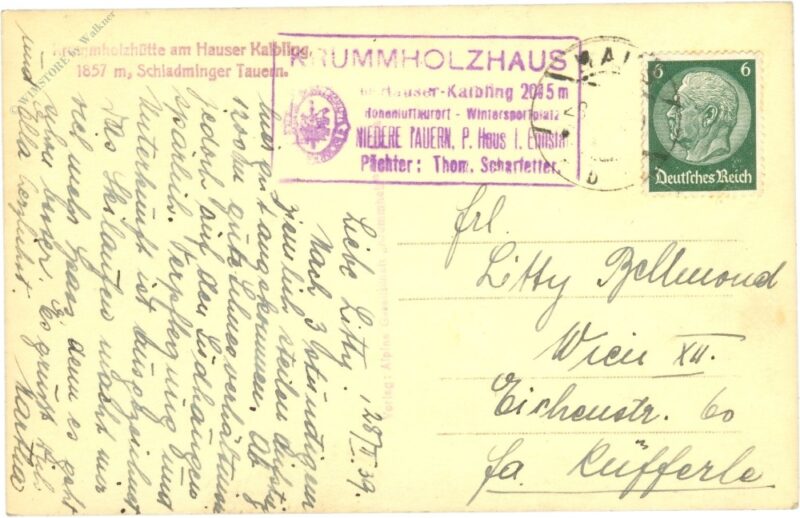 Krummholzhütte am Hauser Kaibling,
1857 m, Schladminger Tauern.
KRUMMHOLZHAUS
Hauser-Kaibling 2015m
Höhenluftkurort - Wintersportplatz
NIEDERE TAUERN, P. Haus i. Ennstal
Pächter: Thom. Scharfetter.
6 6
Deutsches Reich
28/II.39.
Liebe Litty!
Nach 3 stündigem
ziemlich steilen Aufstieg
hier gut angekommen. Ab
1200 m gute Schneeverhältnisse
jedoch auf den Südhängen
spärlich. Verpflegung und
Unterkunft ist ausgezeichnet
Das Skilaufen macht mir
viel mehr Spass denn es geht
schon besser. Es grüßt Dich
und Ella
Martha
Frl.
Litty Bellmond
Wien XII.
Eichenstr. 60
Fa. Küfferle